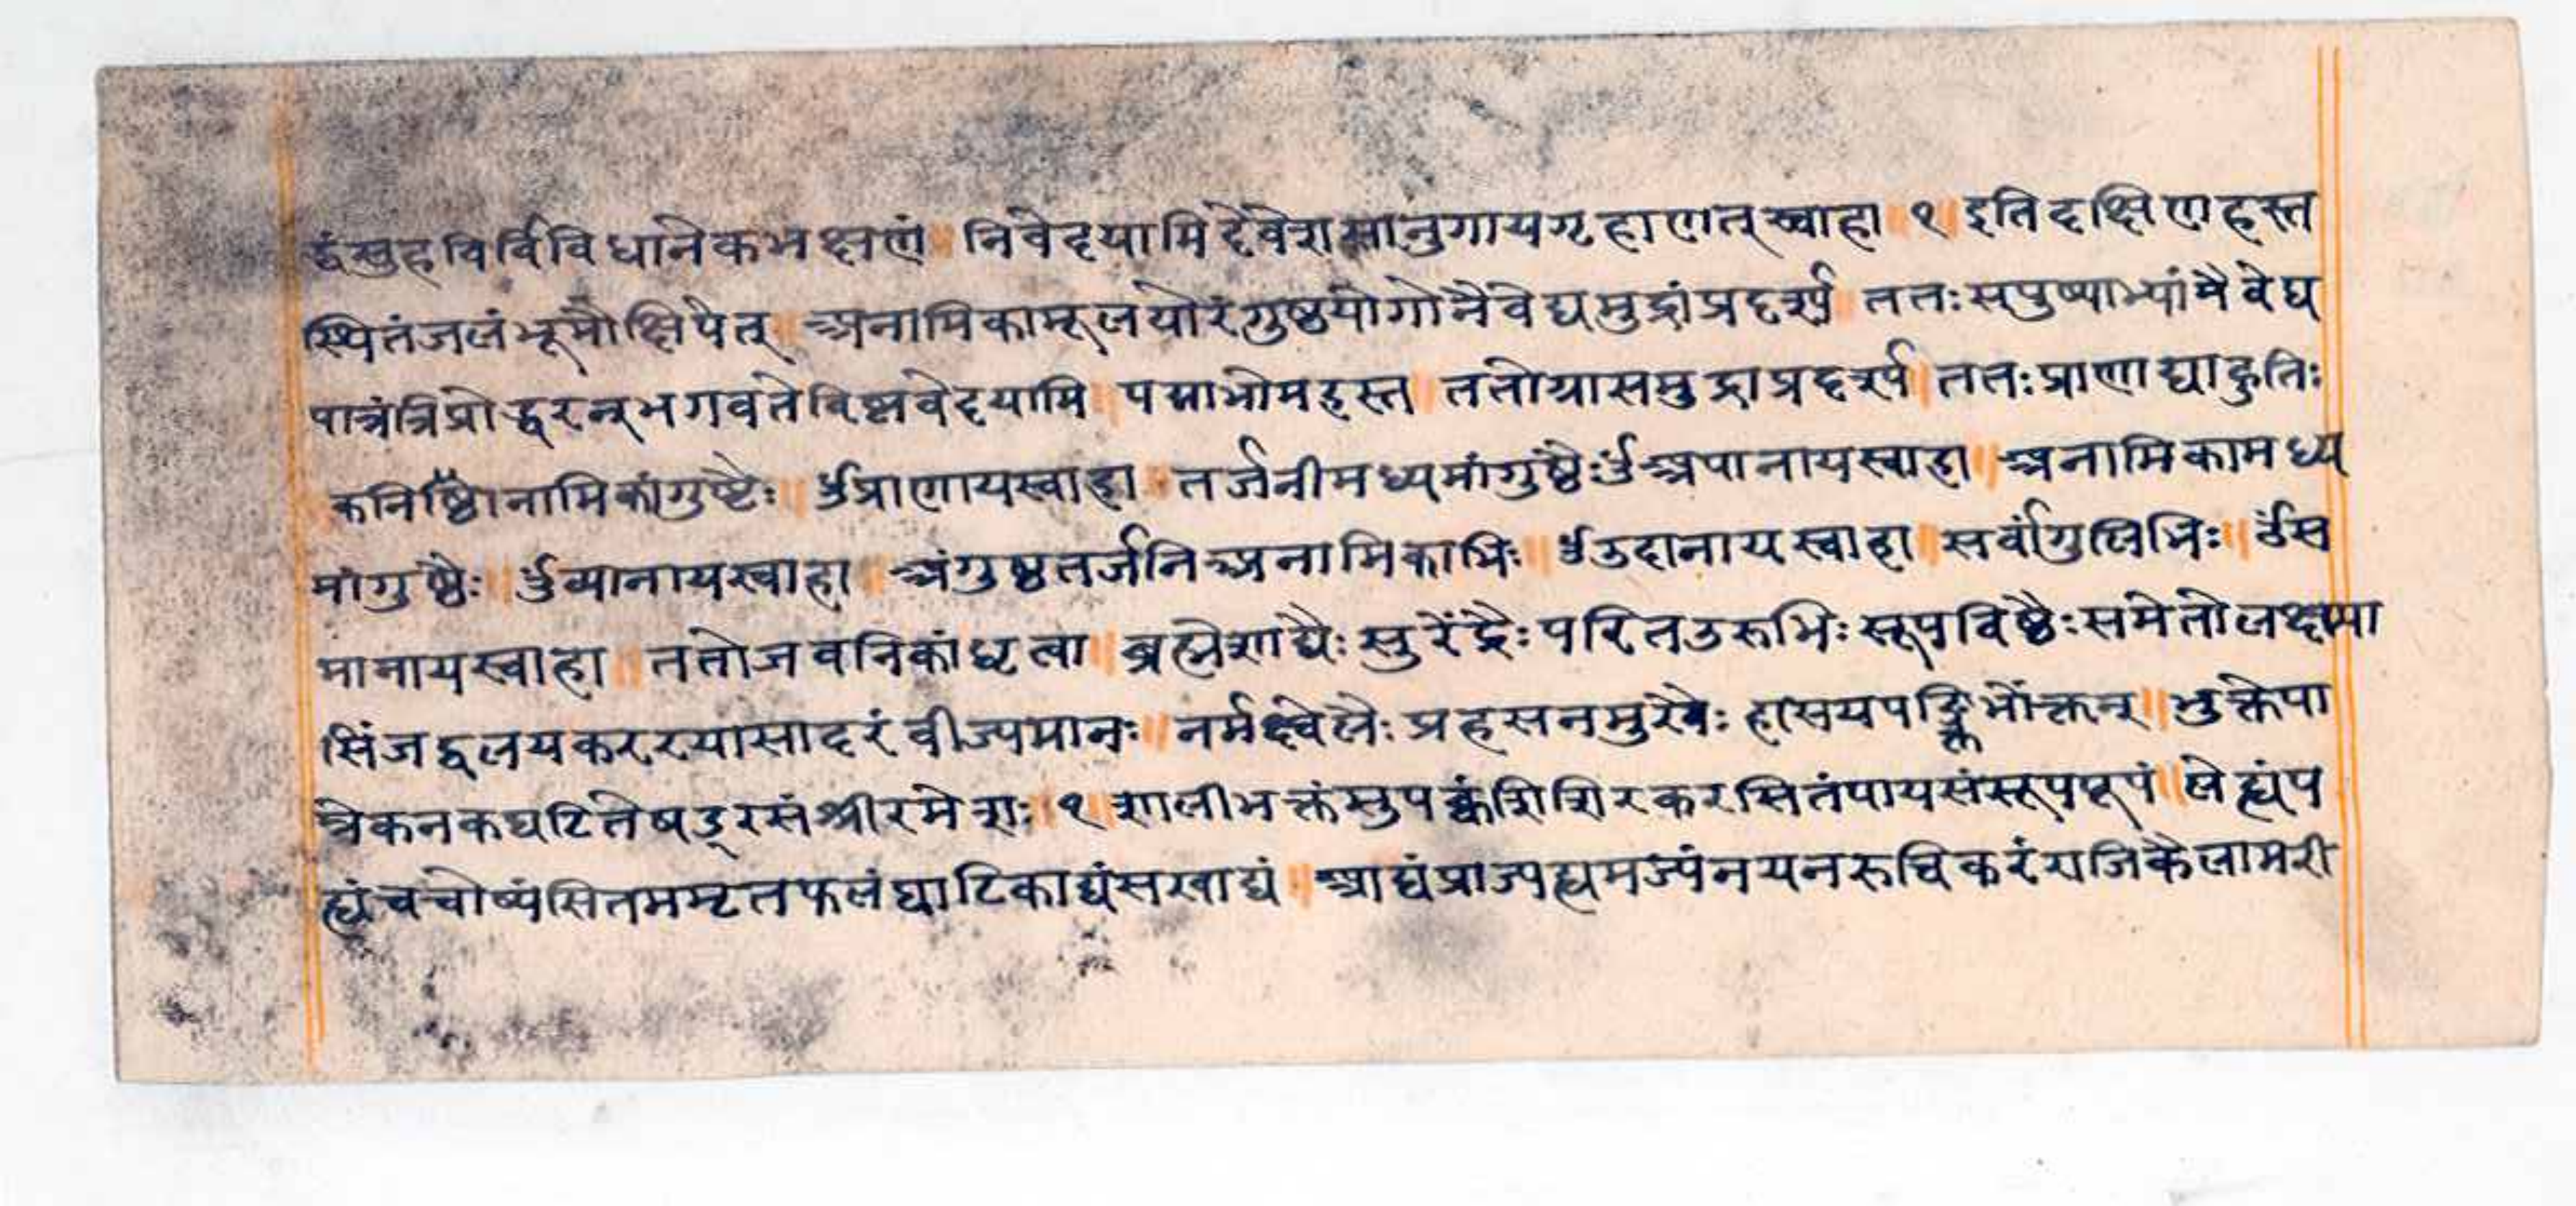 द्धंसुहविर्विविधानेकभक्षणं॥ निवेदयामिदेवेशसानुगायगृहाणतत्स्वाहा १ इतिदक्षिणहस्त
स्थितंजलंभूमौक्षिपेत् अनामिकामूलयोरंगुष्ठयोगोनैवेद्यमुद्रांप्रदर्श्य ततःसपुष्पाभ्यांनैवेद्य
पात्रंत्रिप्रोद्धरन्भगवते ततोग्रासमुद्राप्रदर्श्य ततःप्राणाद्याहुतिः
कनिष्ठानामिकांगुष्टैः॥ ॐप्राणायस्वाहा॥ तर्जनीमध्यमांगुष्ठैःॐअपानायस्वाहा॥ अनामिकामध्य
मांगुष्ठैः॥ ॐव्यानायस्वाहा॥ अंगुष्ठतर्जनिअनामिकाभिः॥ ॐउदानायस्वाहा॥ सर्वांगुलिभिः॥ ॐस
मानायस्वाहा॥ ततोजवनिकांधृत्वा॥ ब्रह्मेशाद्यैःसुरेंद्रैःपरितउरुभिःसूपविष्ठैःसमेतोलक्ष्म्या
सिंजद्वलयकररयासादरंवीज्यमानः॥ नर्मक्ष्वेलैःप्रहसनमुखैः हासयपङ्क्तिभोक्तन्॥ भुक्तेपा
त्रेकनकघटितेषड्रसंश्रीरमेशः॥१॥शालीभक्तंसुपक्वंशिशिरकरसितंपायसंसूपपूपं॥ लेह्यंप
ह्यंचचोष्यंसितममृतफलंघाटिकाद्यंसखाद्यं॥ आद्यंप्राज्यह्यमज्यंनयनरुचिकरंराजिकैलामरी